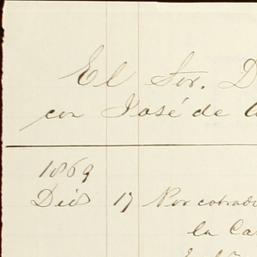 El Sor. D
con José de
1869
Dic 17 Por cobrad
la Ca